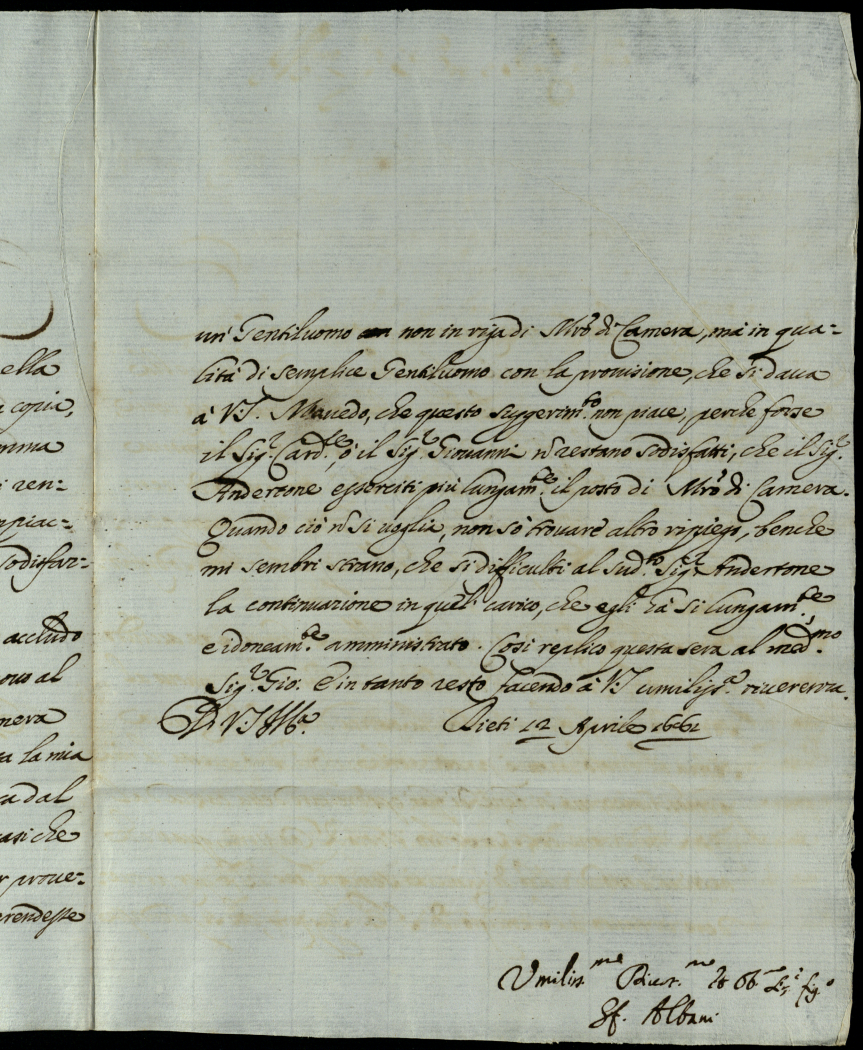 ella
copia,
mma
i ren-
mpiac-
sodisfar-
accludo
ouo al
mera
ca la mia
ca dal
casi che
r proue-
rendesse
un' Gentiluomo non in riga di Mrõ di Camera, mà in qua-
lità di semplice Gentiluomo con la prouisione, che si daua
à V.S. Macedo, che questo suggerim.to non piace, perche forse
il Sig.r Card.le, ò il Sig.r Giouanni ñ restano sodisfatti, che il Sig.r
Andertone esserciti più lungam.te il posto di Mrõ di Camera.
Quando ciò ñ si uoglia, non sò trouare altro ripiego, benche
mi sembri strano, che si difficulti al Sud.to Sig.r Andertone
la continuazione in quel carico, che egli hà sì lungam.te
e idoneam.te amministrato. Cosi replico questa sera al med.mo
Sig.r Gio: E in tanto resto facendo à V.S. umiliss.a riuerenza.
Di V.S. Ill.ma Rieti 12 Aprile 1661
Umiliss.me Diuot.mo et Ob.mo
Albani